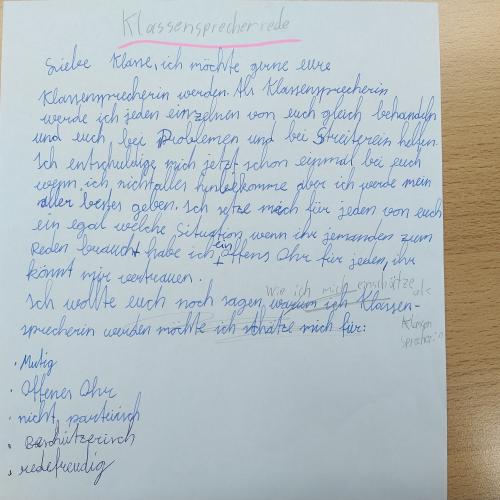 Klassensprecherrede
Liebe Klasse, ich möchte gerne eure
Klassensprecherin werden. Als Klassensprecherin
werde ich jeden einzelnen von euch gleich behandeln
und euch bei Problemen und bei Streiterein helfen.
Ich entschuldige mich jetzt schon einmal bei euch
wenn ich nicht alles hinbekomme aber ich werde mein
aller bestes geben. Ich setze mich für jeden von euch
ein egal welche Situation wenn ihr jemanden zum
Reden braucht habe ich ein offens Ohr für jeden, ihr
könnt mir vertrauen.
wie ich mich einschätze als
Ich wollte euch noch sagen, warum ich Klassen-
Klassen
sprecherin werden möchte ich schätze mich für:
sprecherin
· Mutig
· Offenes Ohr
· nicht parteiisch
· Beschützerisch
· redefreudig